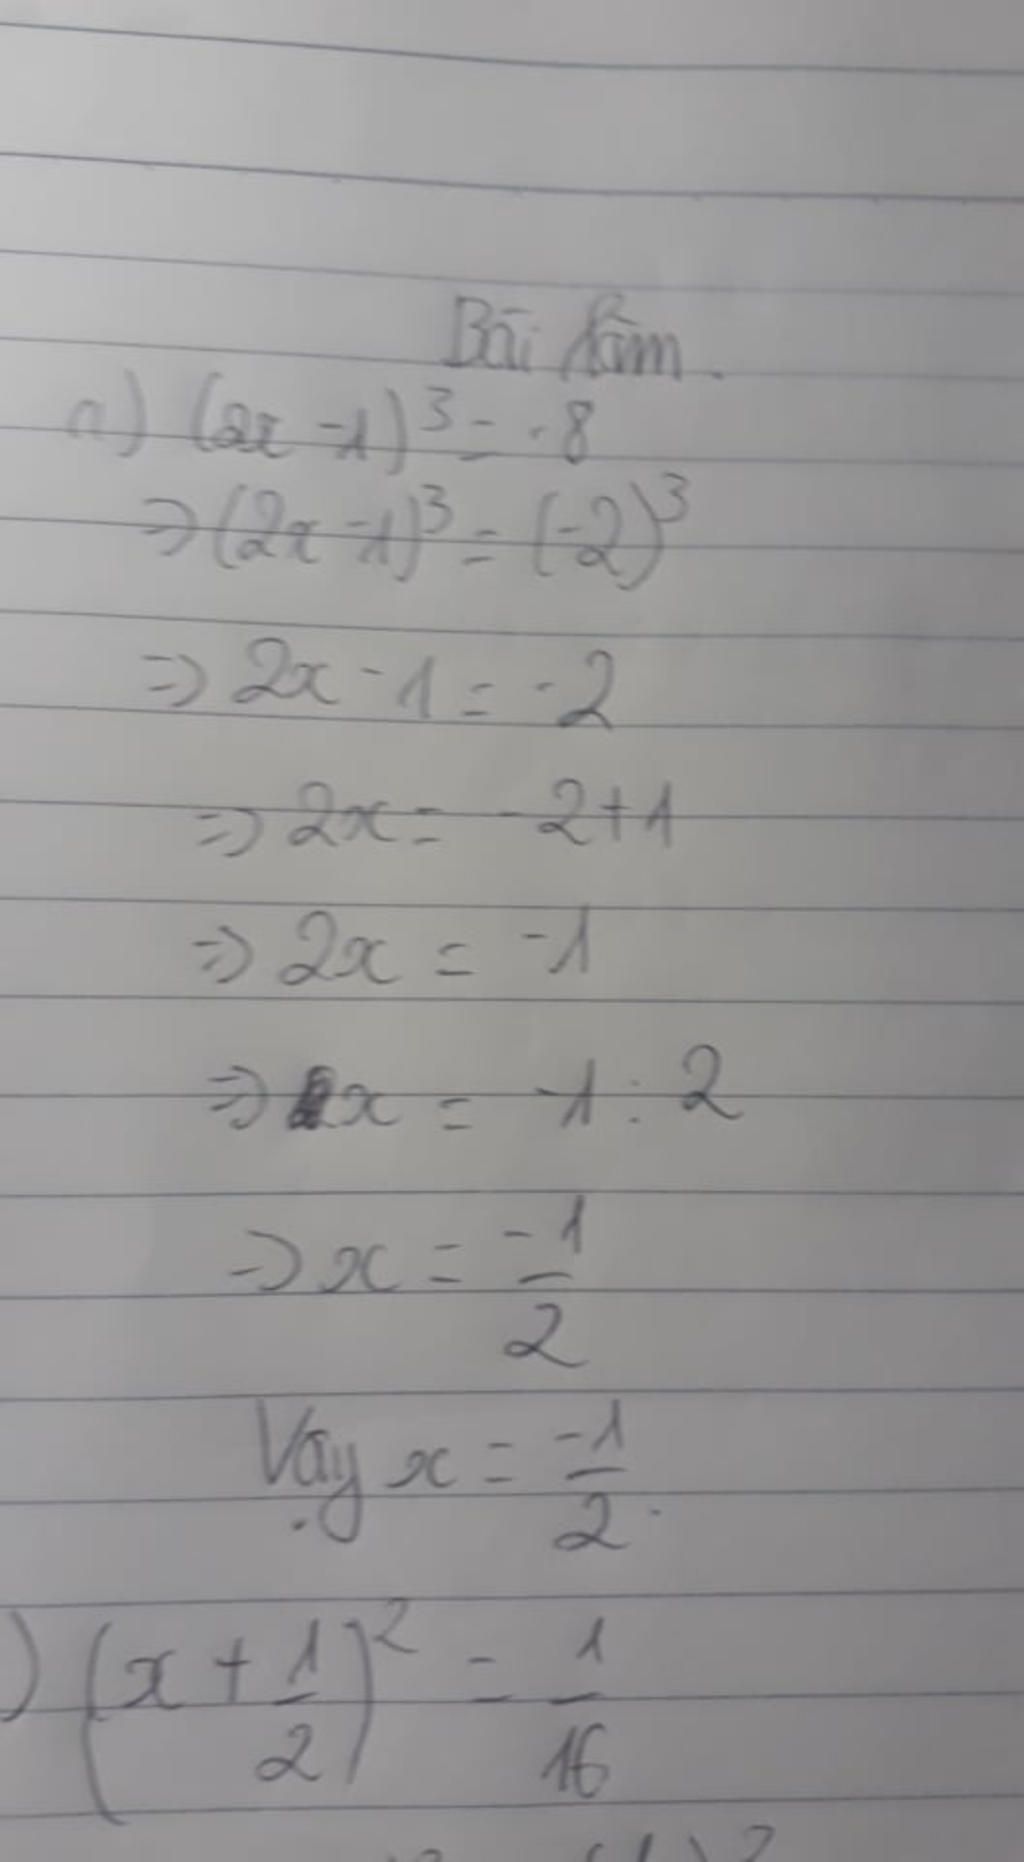 Bài làm.
a) (2x - 1)³ = -8
⇒ (2x - 1)³ = (-2)³
⇒ 2x - 1 = -2
⇒ 2x = -2 + 1
⇒ 2x = -1
⇒ x = -1 : 2
⇒ x = -1/2
Vậy x = -1/2.
) (x + 1/2)² = 1/16